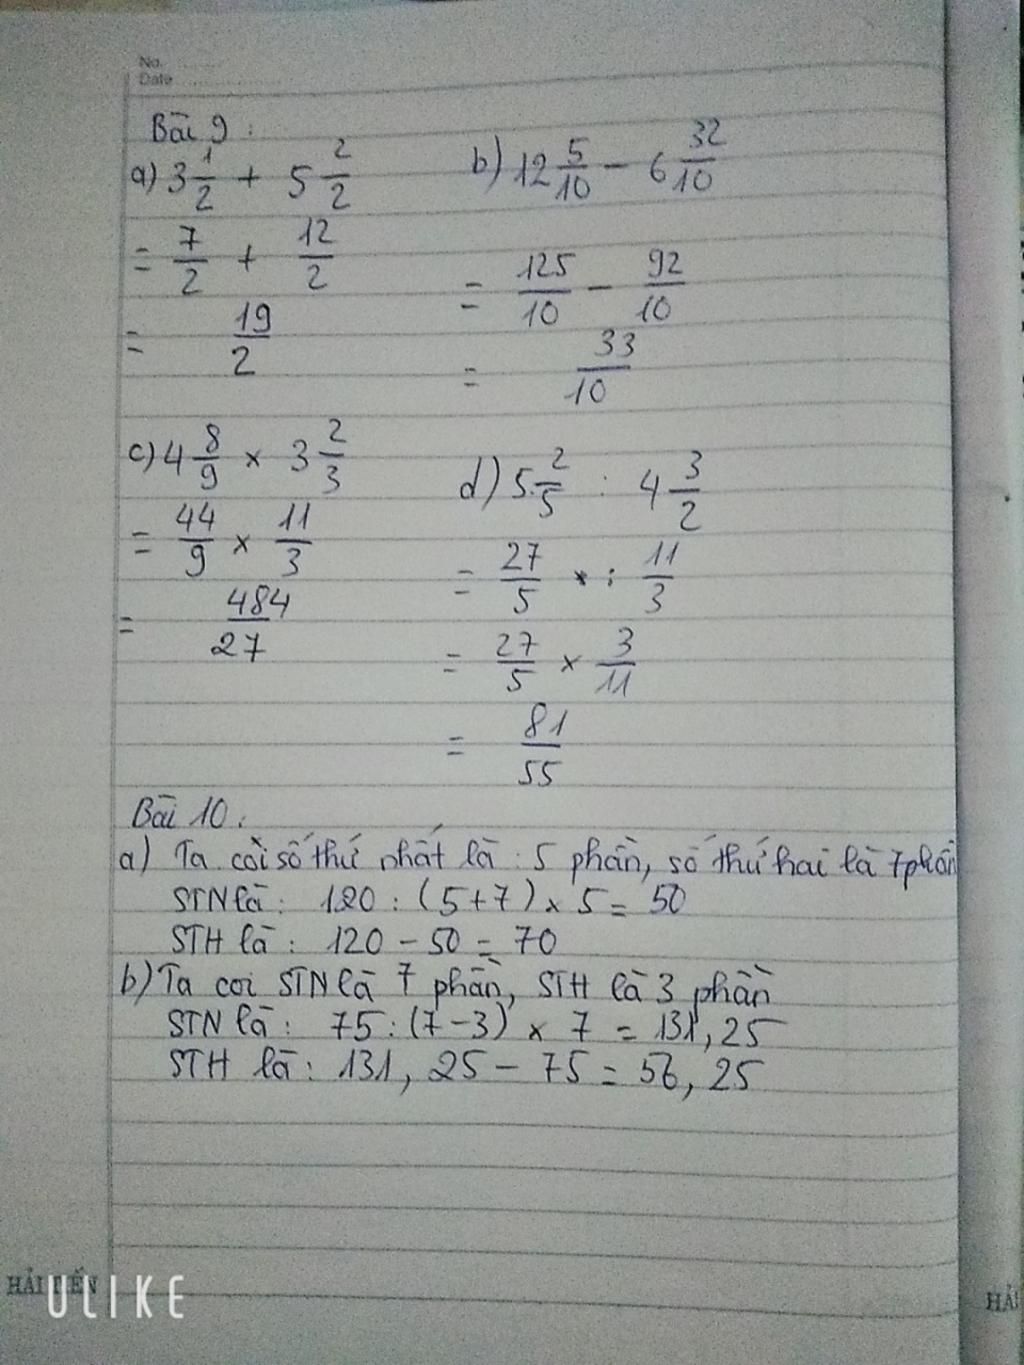 No.
Date
Bài 9 :
a) 3 1/2 + 5 2/2
= 7/2 + 12/2
= 19/2
b) 12 5/10 - 6 32/10
= 125/10 - 92/10
= 33/10
c) 4 8/9 x 3 2/3
= 44/9 x 11/3
= 484/27
d) 5 2/5 : 4 3/2
= 27/5 : 11/3
= 27/5 x 3/11
= 81/55
Bài 10 :
a) Ta coi số thứ nhất là : 5 phần, số thứ hai là 7 phần
STN là : 120 : (5+7) x 5 = 50
STH là : 120 - 50 = 70
b) Ta coi STN là 7 phần, STH là 3 phần
STN là : 75 : (7-3) x 7 = 131,25
STH là : 131,25 - 75 = 56,25
HẢI TIẾN
ULIKE
HẢI